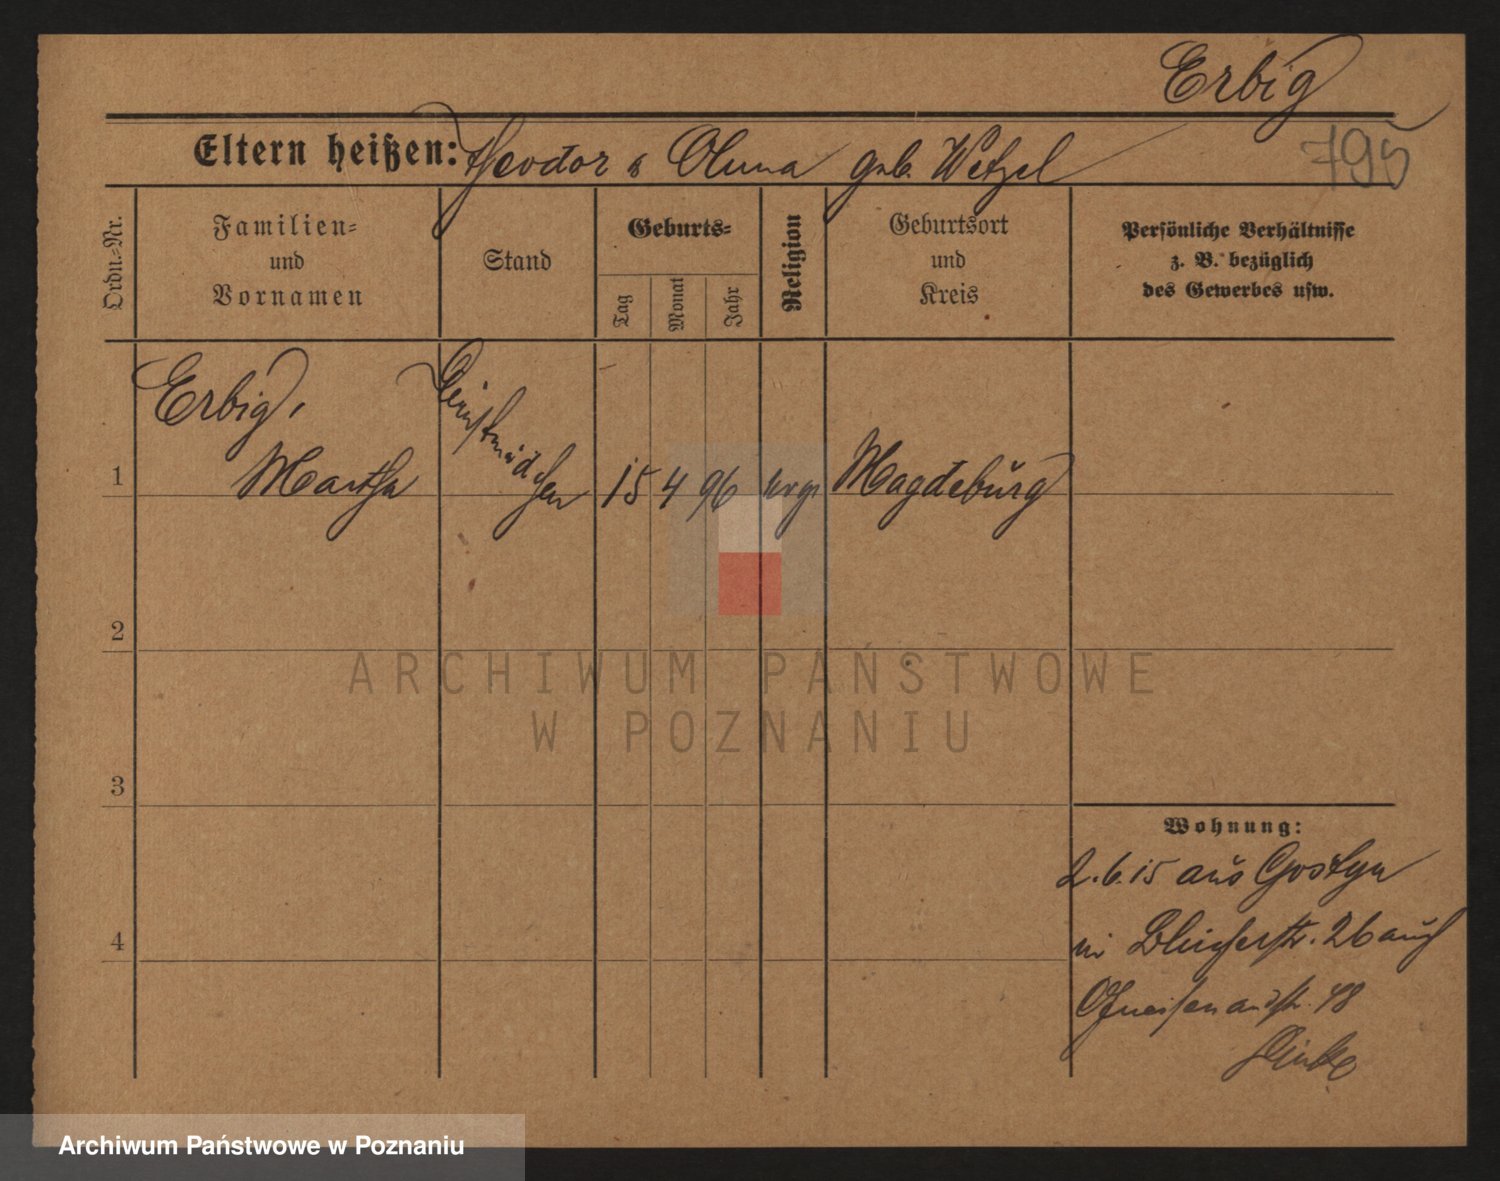 Erbig
795
Eltern heißen: Theodor u Anna geb. Wetzel
Ordn.=Nr.
Familien=
und
Vornamen
Stand
Geburts=
Tag
Monat
Jahr
Religion
Geburtsort
und
Kreis
Persönliche Verhältnisse
z. B. bezüglich
des Gewerbes usw.
1
Erbig,
Martha
Dienstmädchen
15 4 96
Magdeburg
2
3
4
Wohnung:
2.6.15 aus Gostyn
in Blücherstr. 26 auch
Gneisenaustr. 48
ARCHIWUM PAŃSTWOWE
W POZNANIU
Archiwum Państwowe w Poznaniu